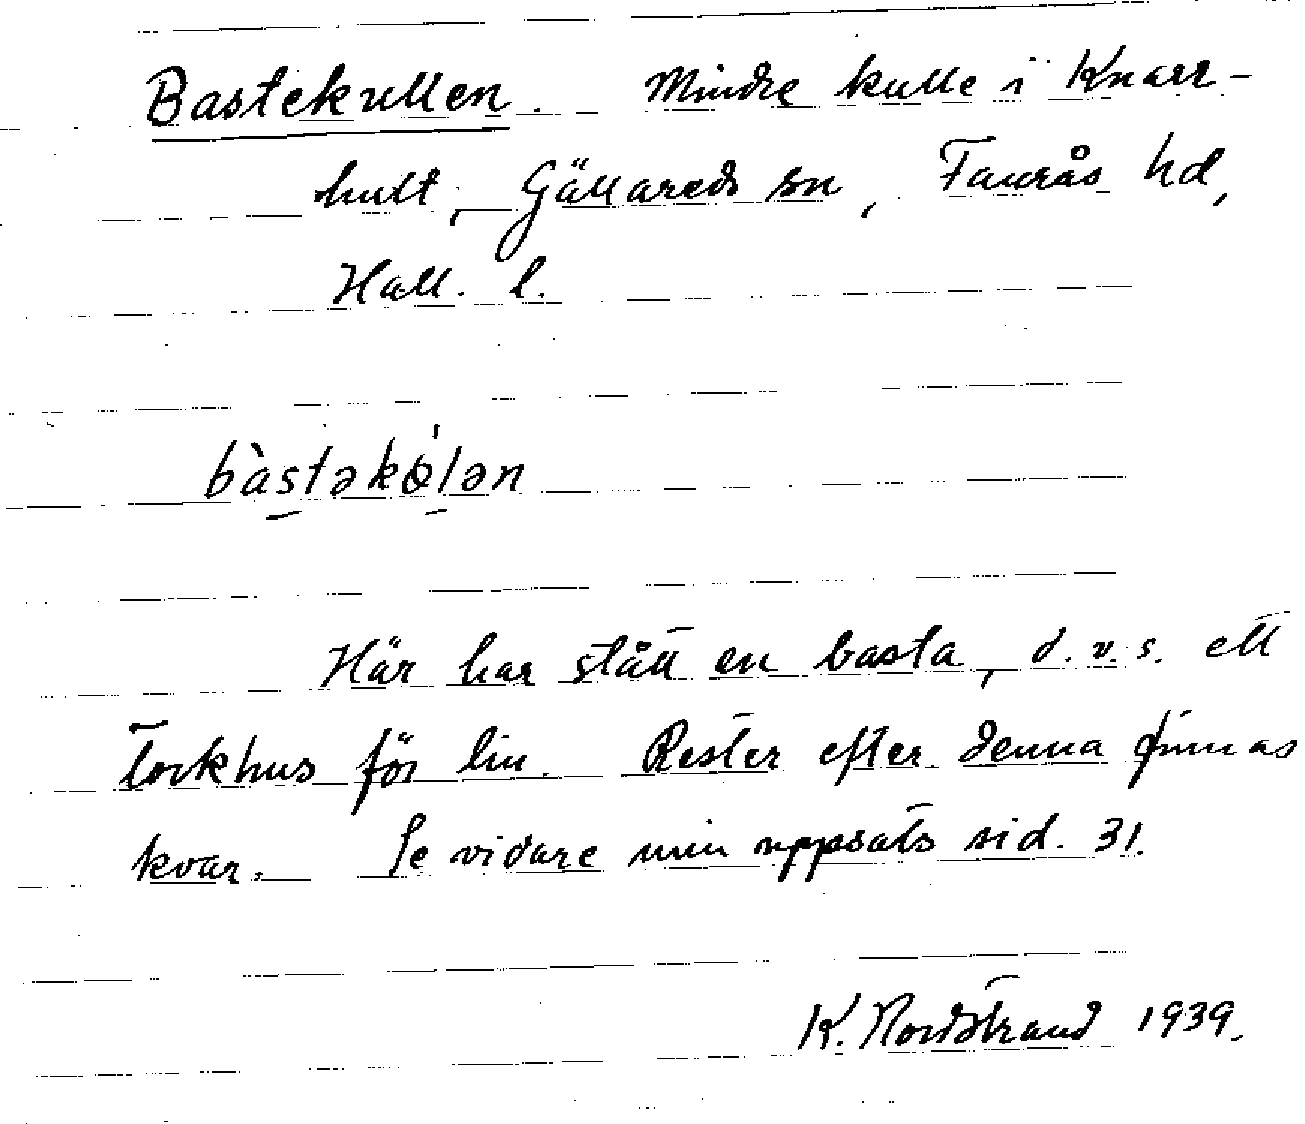 Bastekullen. Mindre kulle i Knarr-
hult, Gällareds sn, Faurås hd,
Hall. l.
bàstəkɵ̀lən
Här har stått en basta, d.v.s. ett
torkhus för lin. Rester efter denna finnas
kvar. Se vidare min uppsats sid. 31.
K. Nordstrand 1939.